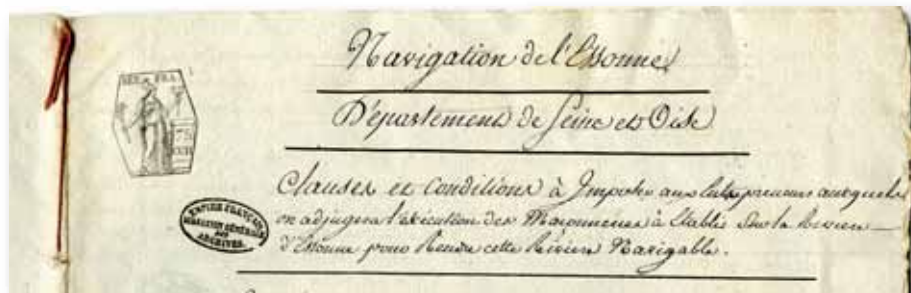 Navigation de l'Essonne
Département de Seine et Oise
REP. FRA.
75
CEN
Clauses et Conditions à Imposer aux Entrepreneurs auxquels
on adjugera l'exécution des Maçonneries à Etablir Sur la Riviere
d'Essonne pour Rendre cette Riviere Navigable.
EMPIRE FRANÇAIS
DIRECTION GÉNÉRALE
DES
ARCHIVES.